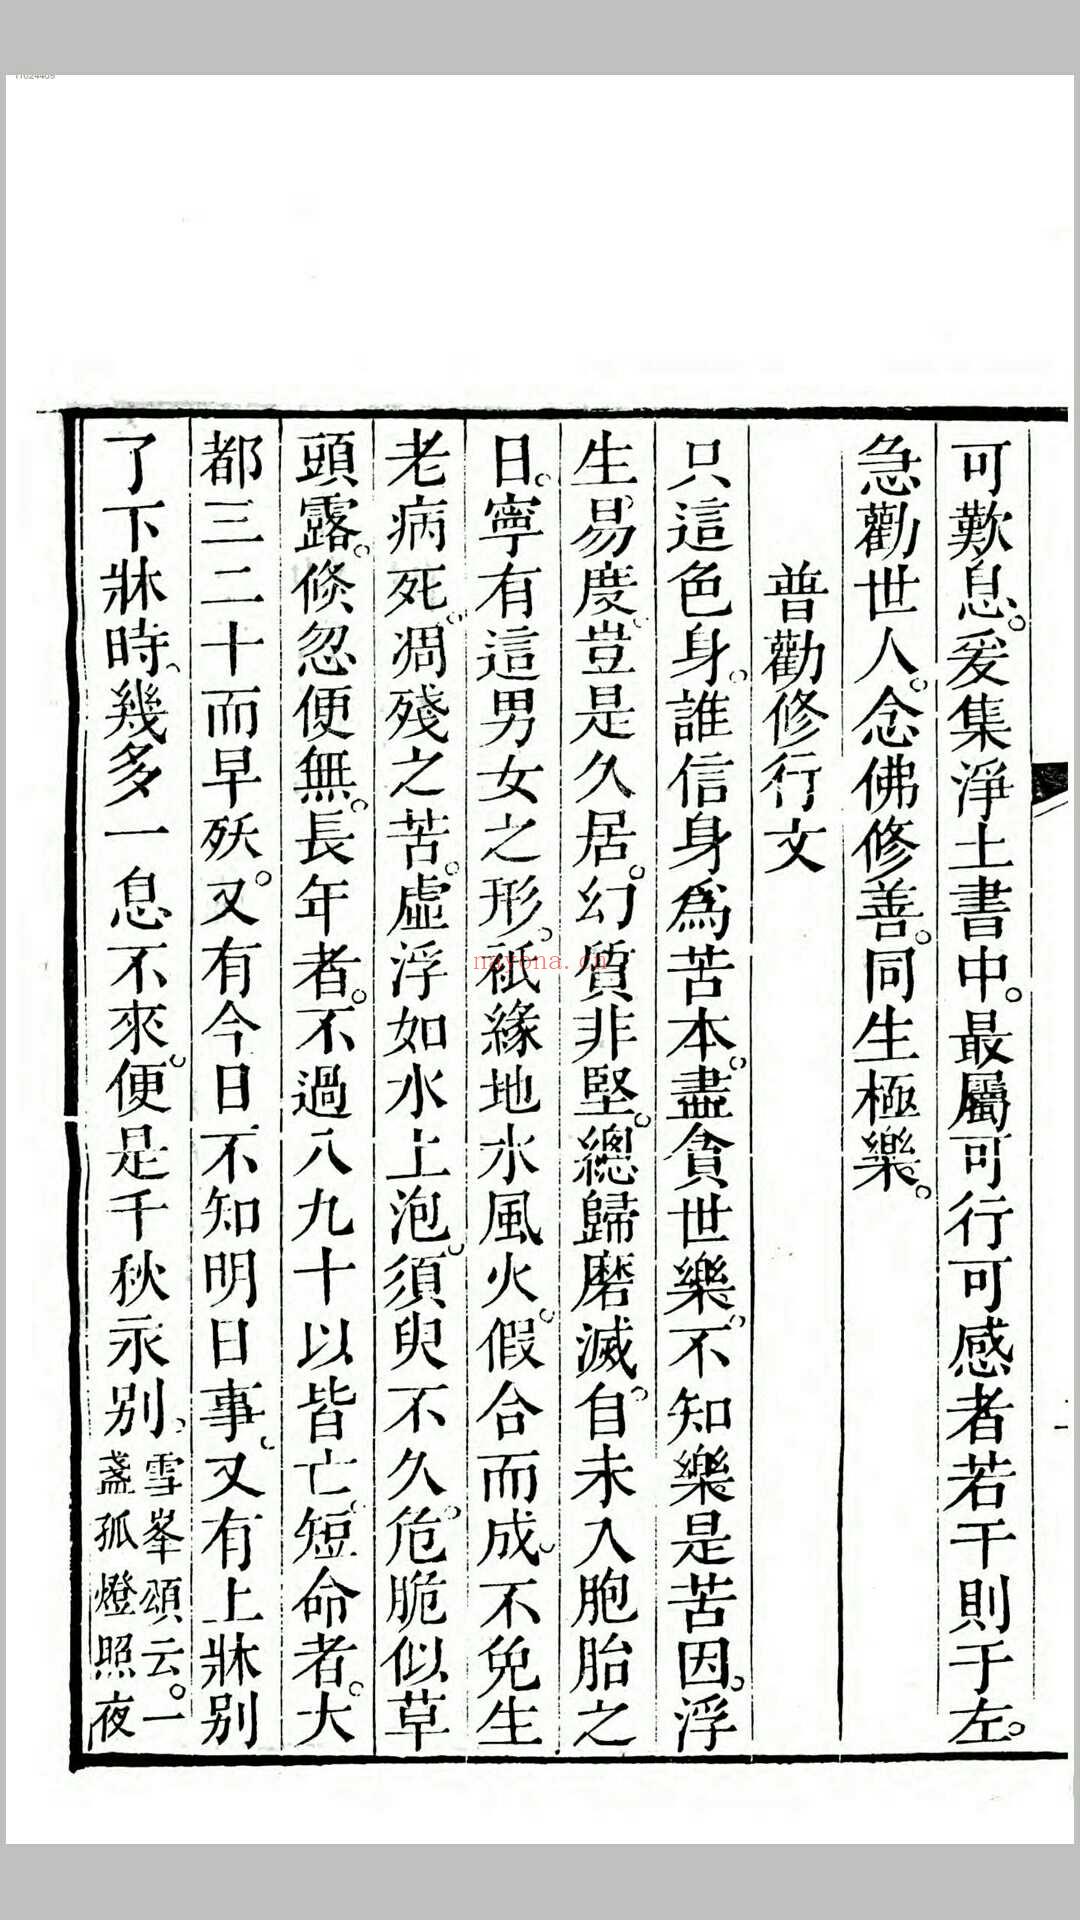 可歎息。爰集淨土書中。最屬可行可感者若干則于左。
急勸世人。念佛修善。同生極樂。
普勸修行文
只這色身。誰信身爲苦本。盡貪世樂。不知樂是苦因。浮
生易度。豈是久居。幻質非堅。總歸磨滅。自未入胞胎之
日。寧有這男女之形。祇緣地水風火。假合而成。不免生
老病死。凋殘之苦。虛浮如水上泡。須臾不久。危脆似草
頭露。倏忽便無。長年者。不過八九十以皆亡。短命者。大
都三二十而早殀。又有今日不知明日事。又有上牀别
了下牀時。幾多一息不來。便是千秋永别。雪峯頌云。一
盞孤燈照夜
nayona.cn
11024469